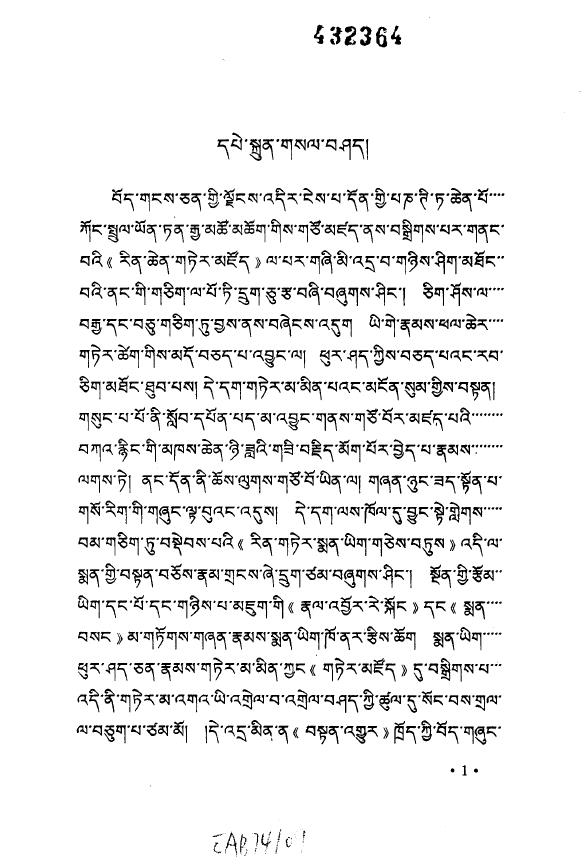 432364
དཔེ་སྐྲུན་གསལ་བཤད།
བོད་གངས་ཅན་གྱི་ལྗོངས་འདིར་ངེས་པ་དོན་གྱི་པཎ་ཌི་ཏ་ཆེན་པོ་
ཀོང་སྤྲུལ་ཡོན་ཏན་རྒྱ་མཚོ་མཆོག་གིས་གཙོ་མཛད་ནས་བསྒྲིགས་པར་གནང་
བའི《 རིན་ཆེན་གཏེར་མཛོད》ལ་པར་གཞི་མི་འདྲ་བ་གཉིས་ཤིག་མཐོང་
བའི་ནང་གི་གཅིག་ལ་པོ་ཏི་དྲུག་ཅུ་རྩ་བཞི་བཞུགས་ཤིང་། ཅིག་ཤོས་ལ་
བརྒྱ་དང་བཅུ་གཅིག་ཏུ་བྱས་ནས་བཞེངས་འདུག ཡི་གེ་རྣམས་ཕལ་ཆེར་
གཏེར་ཚེག་གིས་མདོ་བཅད་པ་འབྱུང་ལ། ཕུར་ཤད་ཀྱིས་བཅད་པའང་རབ་
ཅིག་མཐོང་ཐུབ་པས། དེ་དག་གཏེར་མ་མིན་པའང་མངོན་སུམ་གྱིས་བསྟན།
གསུང་པ་པོ་ནི་སློབ་དཔོན་པད་མ་འབྱུང་གནས་གཙོ་བོར་མཛད་པའི་
བཀའ་རྙིང་གི་མཁས་ཆེན་ཉི་ཟླའི་གཟི་བརྗིད་མོག་པོར་བྱེད་པ་རྣམས་
ལགས་ཏེ། ནང་དོན་ནི་ཆོས་ལུགས་གཙོ་བོ་ཡིན་ལ། གཞན་ཉུང་ཟད་སྟོན་པ་
གསོ་རིག་གི་གཞུང་ལྟ་བུའང་འདུས། དེ་དག་ལས་ཁོལ་དུ་བྱུང་སྟེ་གླེགས་
བམ་གཅིག་ཏུ་བསྡེབས་པའི《 རིན་གཏེར་སྨན་ཡིག་གཅེས་བཏུས》འདི་ལ་
སྨན་གྱི་བསྟན་བཅོས་རྣམ་གྲངས་ཞེ་དྲུག་ཙམ་བཞུགས་ཤིང་། སྔོན་གྱི་རྩོམ་
ཡིག་དང་པོ་དང་གཉིས་པ་མཇུག་གི《 རྣལ་འབྱོར་རེ་སྐོང》དང《 སྨན་
བསང》མ་གཏོགས་གཞན་རྣམས་སྨན་ཡིག་ཁོ་ནར་རྩིས་ཆོག སྨན་ཡིག་
ཕུར་ཤད་ཅན་རྣམས་གཏེར་མ་མིན་ཀྱང《 གཏེར་མཛོད》དུ་བསྒྲིགས་པ་
འདི་ནི་གཏེར་མ་འགའ་ཡི་འགྲེལ་བ་འགྲེལ་བཤད་ཀྱི་ཚུལ་དུ་སོང་བས་གྲལ་
ལ་བཅུག་པ་ཙམ་མོ། །དེ་འདྲ་མིན་ན《 བསྟན་འགྱུར》ཁྲོད་ཀྱི་བོད་གཞུང་
• 1 •
IAB74/01